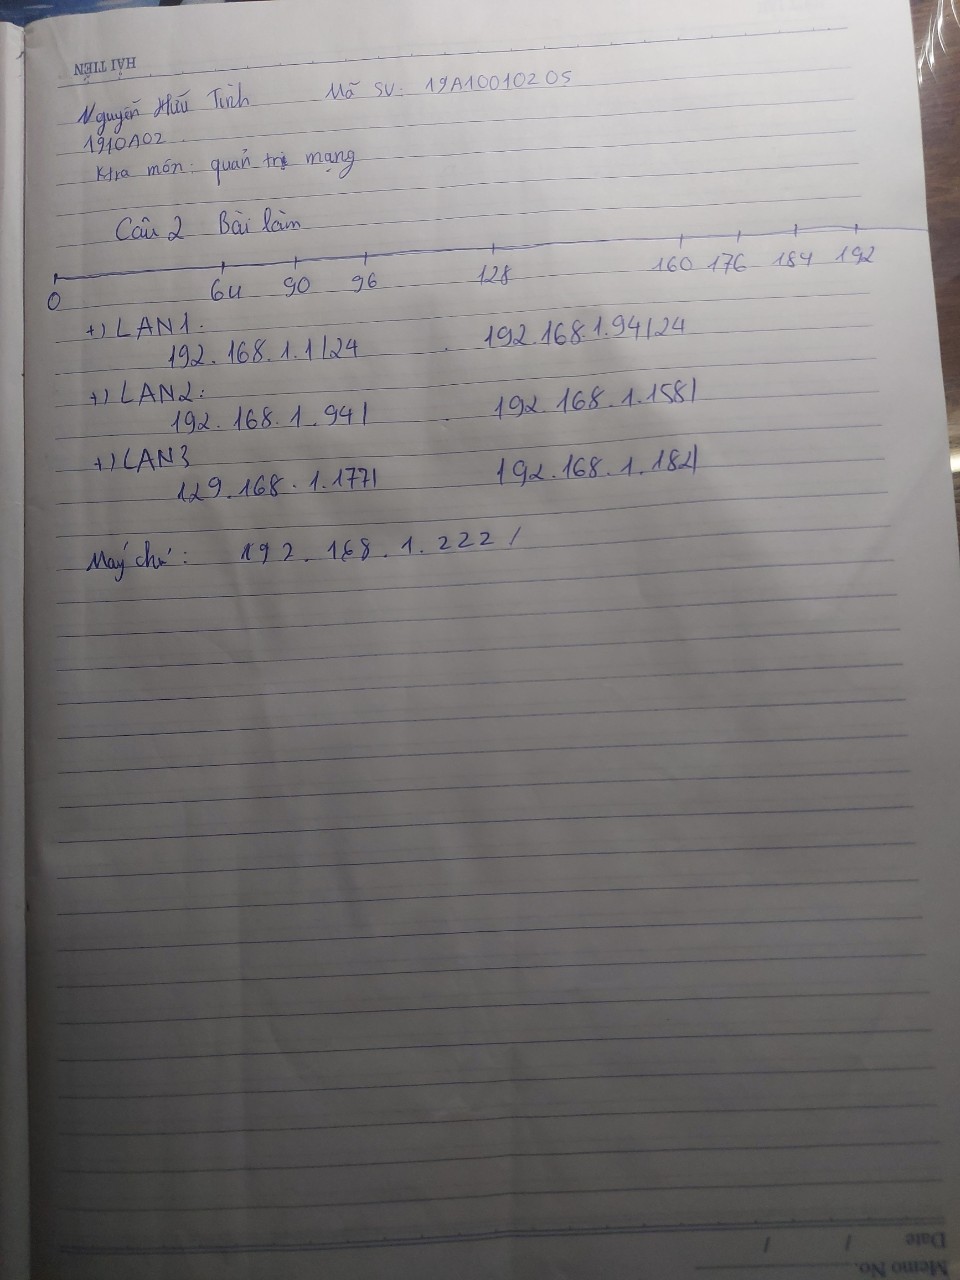 HẢI TIẾN
Nguyễn Hữu Tình Mã SV: 19A10010205
1910A02
Ktra môn: quản trị mạng
Câu 2 Bài làm
0 64 90 96 128 160 176 184 192
+) LAN1:
192.168.1.1/24 192.168.1.94/24
+) LAN2:
192.168.1.94/ 192.168.1.158/
+) LAN3
129.168.1.177/ 192.168.1.182/
Máy chủ: 192.168.1.222/
Date / /
Memo No.